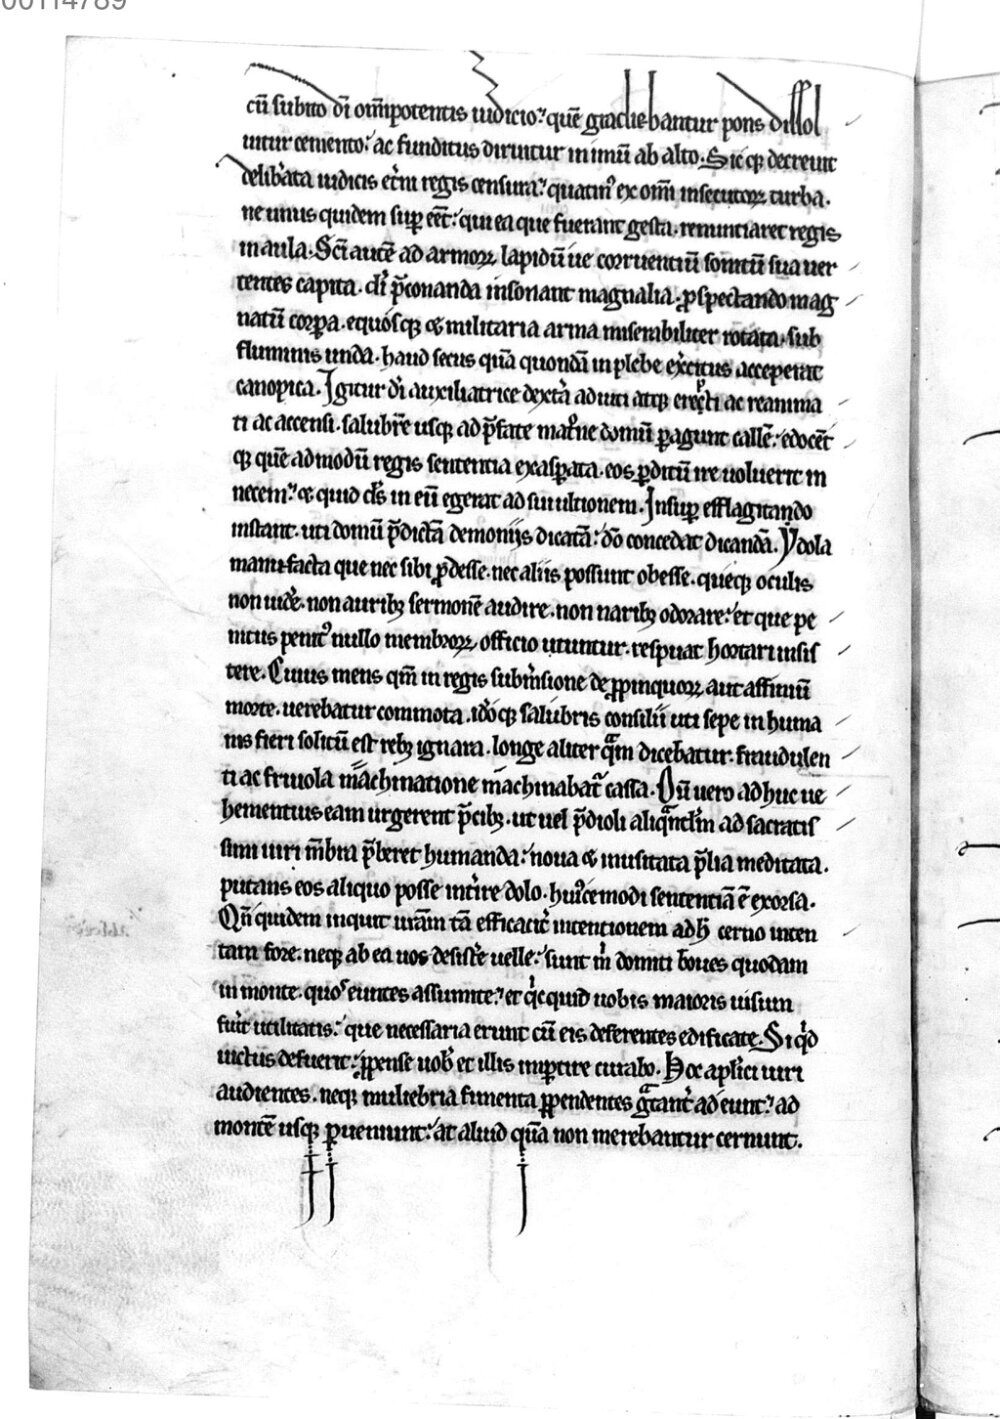 00114789
cū subito dī om̄ipotentis iudicio: quē gradiebantur pons dissol
uitur cemento: ac funditus diruitur in imū ab alto. Sicq; decreuit
deliberata iudicis et̄ni regis censura: quatin⁹ ex om̄i insecutoꝝ turba.
ne unus quidem sup eēt: qui ea que fuerant gesta. renunciaret regis
in aula. Sc̄i autē ad armoꝝ lapidū ue corruentiū sonitū sua uer
tentes capita. dī p̄conanda insonant magnalia. ꝓspectando mag
natū corpora. equosq; & militaria arma miserabiliter rotata. sub
fluminis unda. haud secus quā quondā in plebe exc̄itus acceperat
canopica. Igitur dī auxiliatrice dext̄a adiuti atq; erecti ac reanima
ti ac accensi. salubr̄e usq; ad p̄fate mat̓ne domū ꝑagunt callē: edocēt
q; quē admodū regis sententia exasꝑata. eos ꝑditū ire uoluerit in
necem: & quid ds̄ in eū egerat ad sui ultionem. Insuꝑ efflagitando
instant. uti domū p̄dictā demoniis dicatā: dō concedat dicandā. Ydola
manufacta que nec sibi ꝓdesse. nec aliis possunt obesse. queq; oculis
non uidēre. non aurib; sermonē audire. non narib; odorare: et que pe
nitus penit⁹ nullo membroꝝ officio utuntur. respuat hortari insis
tere. Cuius mens qm̄ in regis submīsione de ꝓpinquoꝝ aut affiniū
morte. uerebatur commota. idōq; salubris consilii uti sepe in huma
nis fieri solitū est reb; ignara. longe aliter qͣm dicebatur. fraudulen
ti ac friuola machinatione machinabat̄ cassa. Dū uero adhuc ue
hementius eam urgerent p̄cib;. ut uel p̄dioli aliqͣntulū ad sacratis
simi uiri mēbra p̄beret humanda: noua & inusitata p̄lia meditata.
putans eos aliquo posse int̓ire dolo. hui⁹cemodi sententiā ē exorsa.
Qn̄ quidem inquit ur̄am tā efficacit̓ intentionem ad h̄ cerno inten
tam fore. neq; ab ea uos desist̓e uelle: sunt m̓ domiti boues quodam
in monte. quos euntes assumite: et qͥcquid uobis maioris uisum
fu̓it utilitatis: que necessaria erunt cū eis deferentes edificate. Si qͥd
uictus defuerit: ꝓpense uob̓ et illis imꝑtire curabo. Hoc aplīci uiri
audientes. neq; muliebria funenta ꝑpendentes gͣtant̓ adeunt: ad
montē usq; ꝑueniunt: at aliud quā non merebantur cernunt.